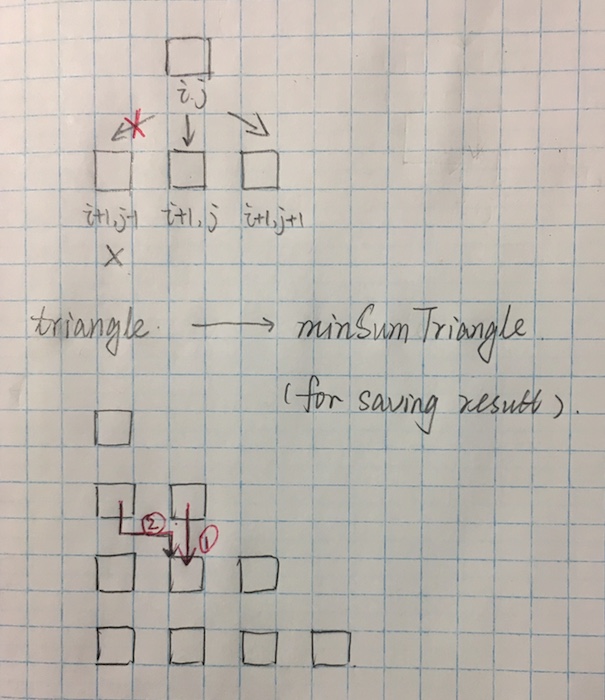 i,j
i+1,j-1 i+1,j i+1,j+1
X
triangle. → minSumTriangle.
(for saving result).
② ①